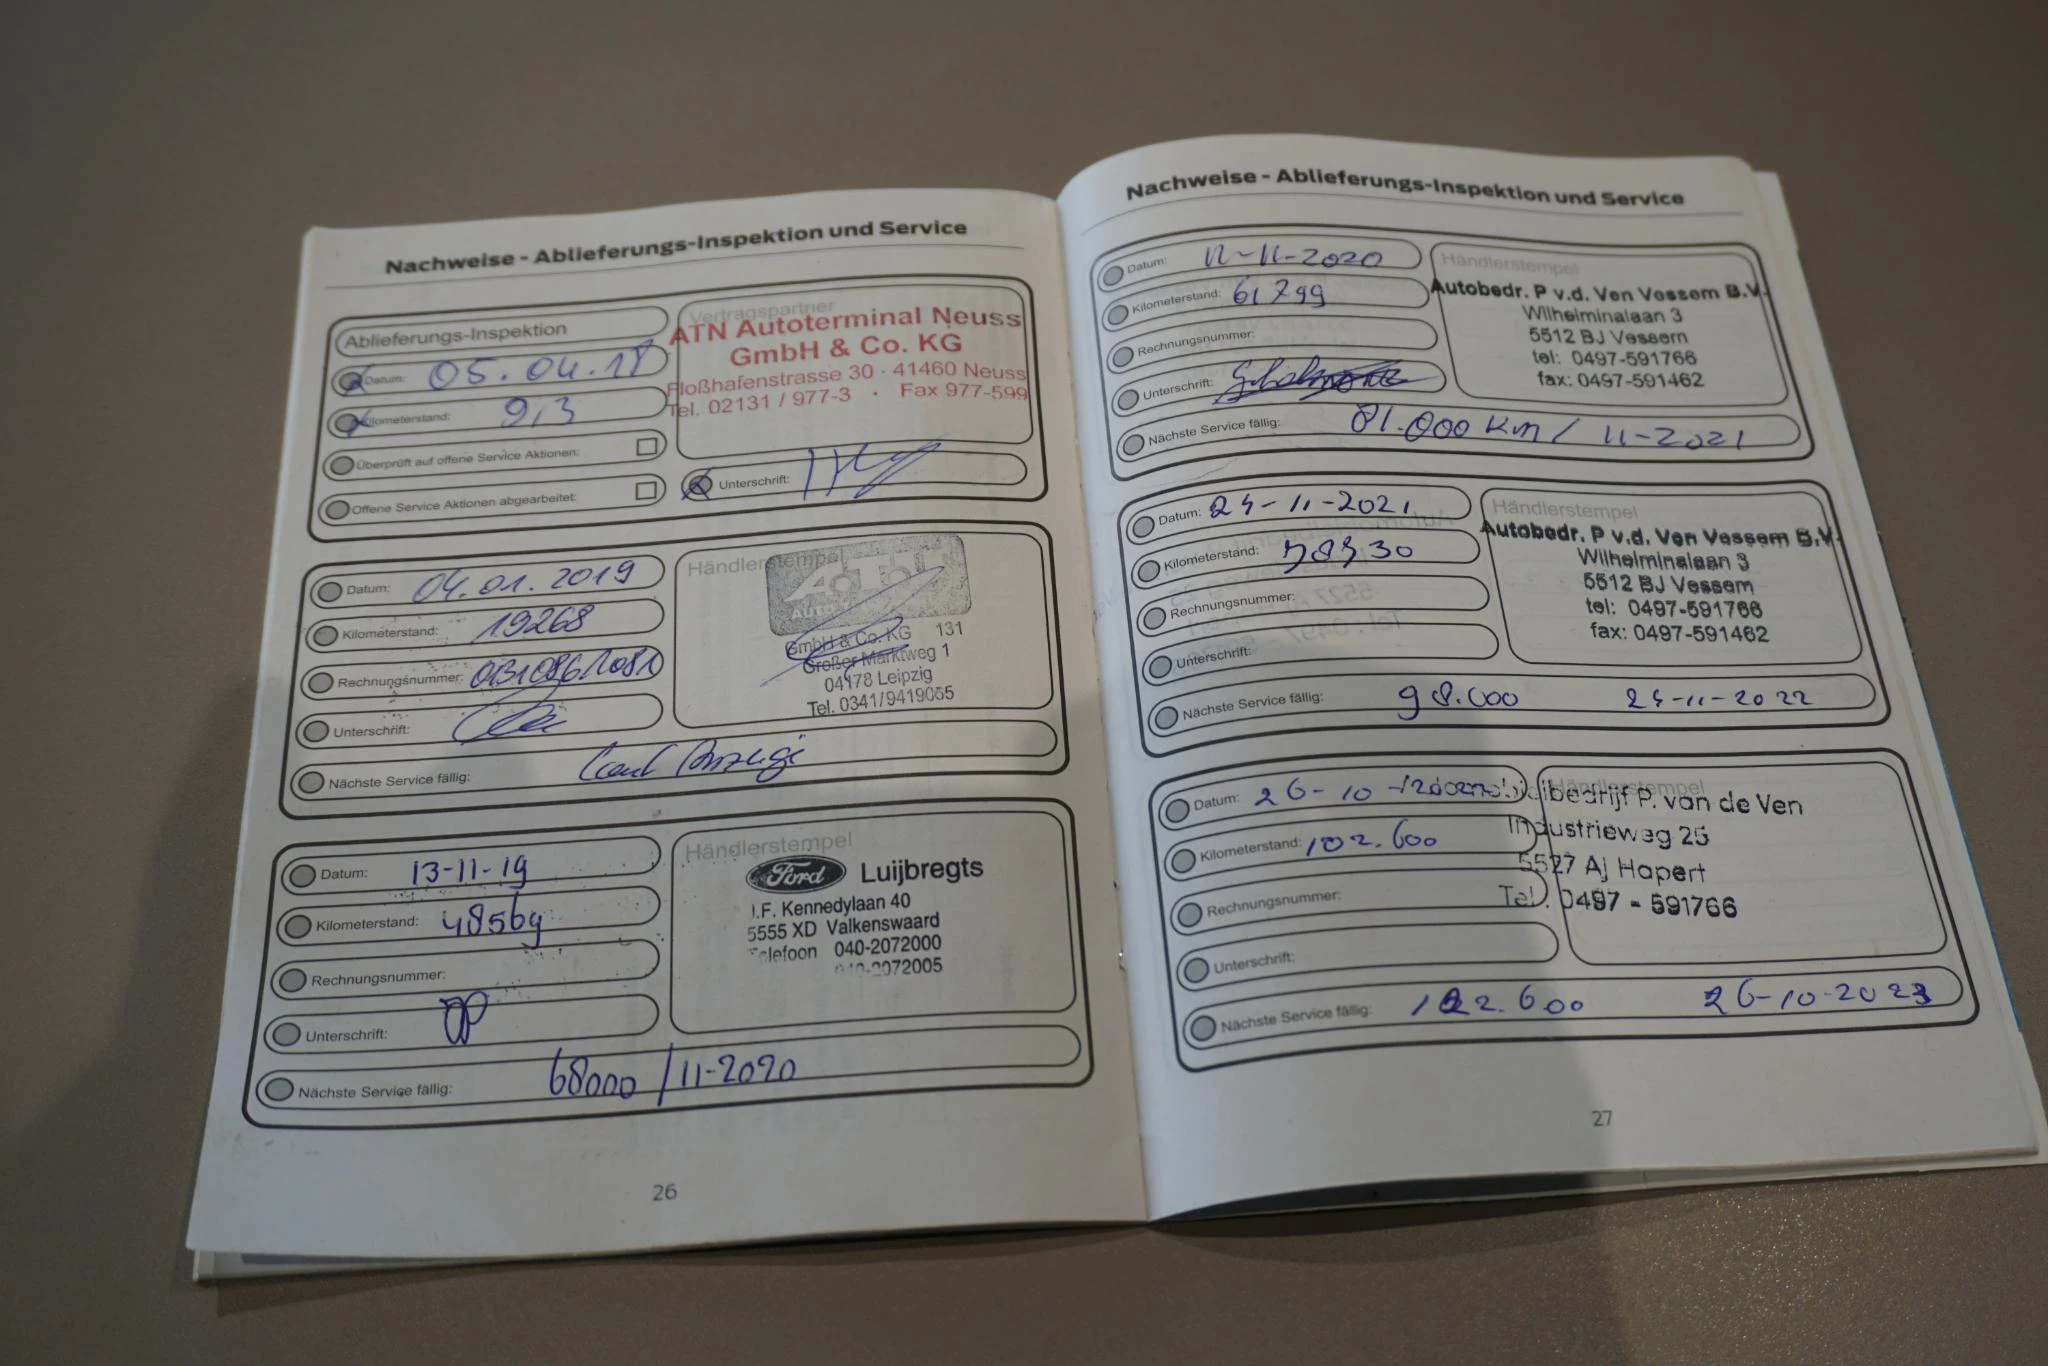 Nachweise - Ablieferungs-Inspektion und Service
Ablieferungs-Inspektion
Datum: 05.04.18
Kilometerstand: 9,3
Überprüft auf offene Service Aktionen:
Offene Service Aktionen abgearbeitet:
Vertragspartner
ATN Autoterminal Neuss
GmbH & Co. KG
Floßhafenstrasse 30 · 41460 Neuss
Tel. 02131 / 977-3 · Fax 977-599
Unterschrift:
Datum: 04.01.2019
Kilometerstand: 19268
Rechnungsnummer:
Unterschrift:
Nächste Service fällig: laut Anzeige
Händlerstempel
GmbH & Co. KG 131
Großer Marktweg 1
04178 Leipzig
Tel. 0341/9419055
Datum: 13-11-19
Kilometerstand: 48569
Rechnungsnummer:
Unterschrift:
Nächste Service fällig: 68000 / 11-2020
Händlerstempel
Ford Luijbregts
J.F. Kennedylaan 40
5555 XD Valkenswaard
Telefoon 040-2072000
040-2072005
26
Nachweise - Ablieferungs-Inspektion und Service
Datum: 12-11-2020
Kilometerstand: 61799
Rechnungsnummer:
Unterschrift:
Nächste Service fällig: 81.000 km / 11-2021
Händlerstempel
Autobedr. P v.d. Ven Vessem B.V.
Wilhelminalaan 3
5512 BJ Vessem
tel: 0497-591766
fax: 0497-591462
Datum: 24-11-2021
Kilometerstand:
Rechnungsnummer:
Unterschrift:
Nächste Service fällig: 98.000 24-11-2022
Händlerstempel
Autobedr. P v.d. Ven Vessem B.V.
Wilhelminalaan 3
5512 BJ Vessem
tel: 0497-591766
fax: 0497-591462
Datum: 26-10-
Kilometerstand: 102.600
Rechnungsnummer:
Unterschrift:
Nächste Service fällig: 122.600 26-10-2023
Händlerstempel
P. van de Ven
Industrieweg 25
5527 AJ Hapert
Tel. 0497 - 591766
27